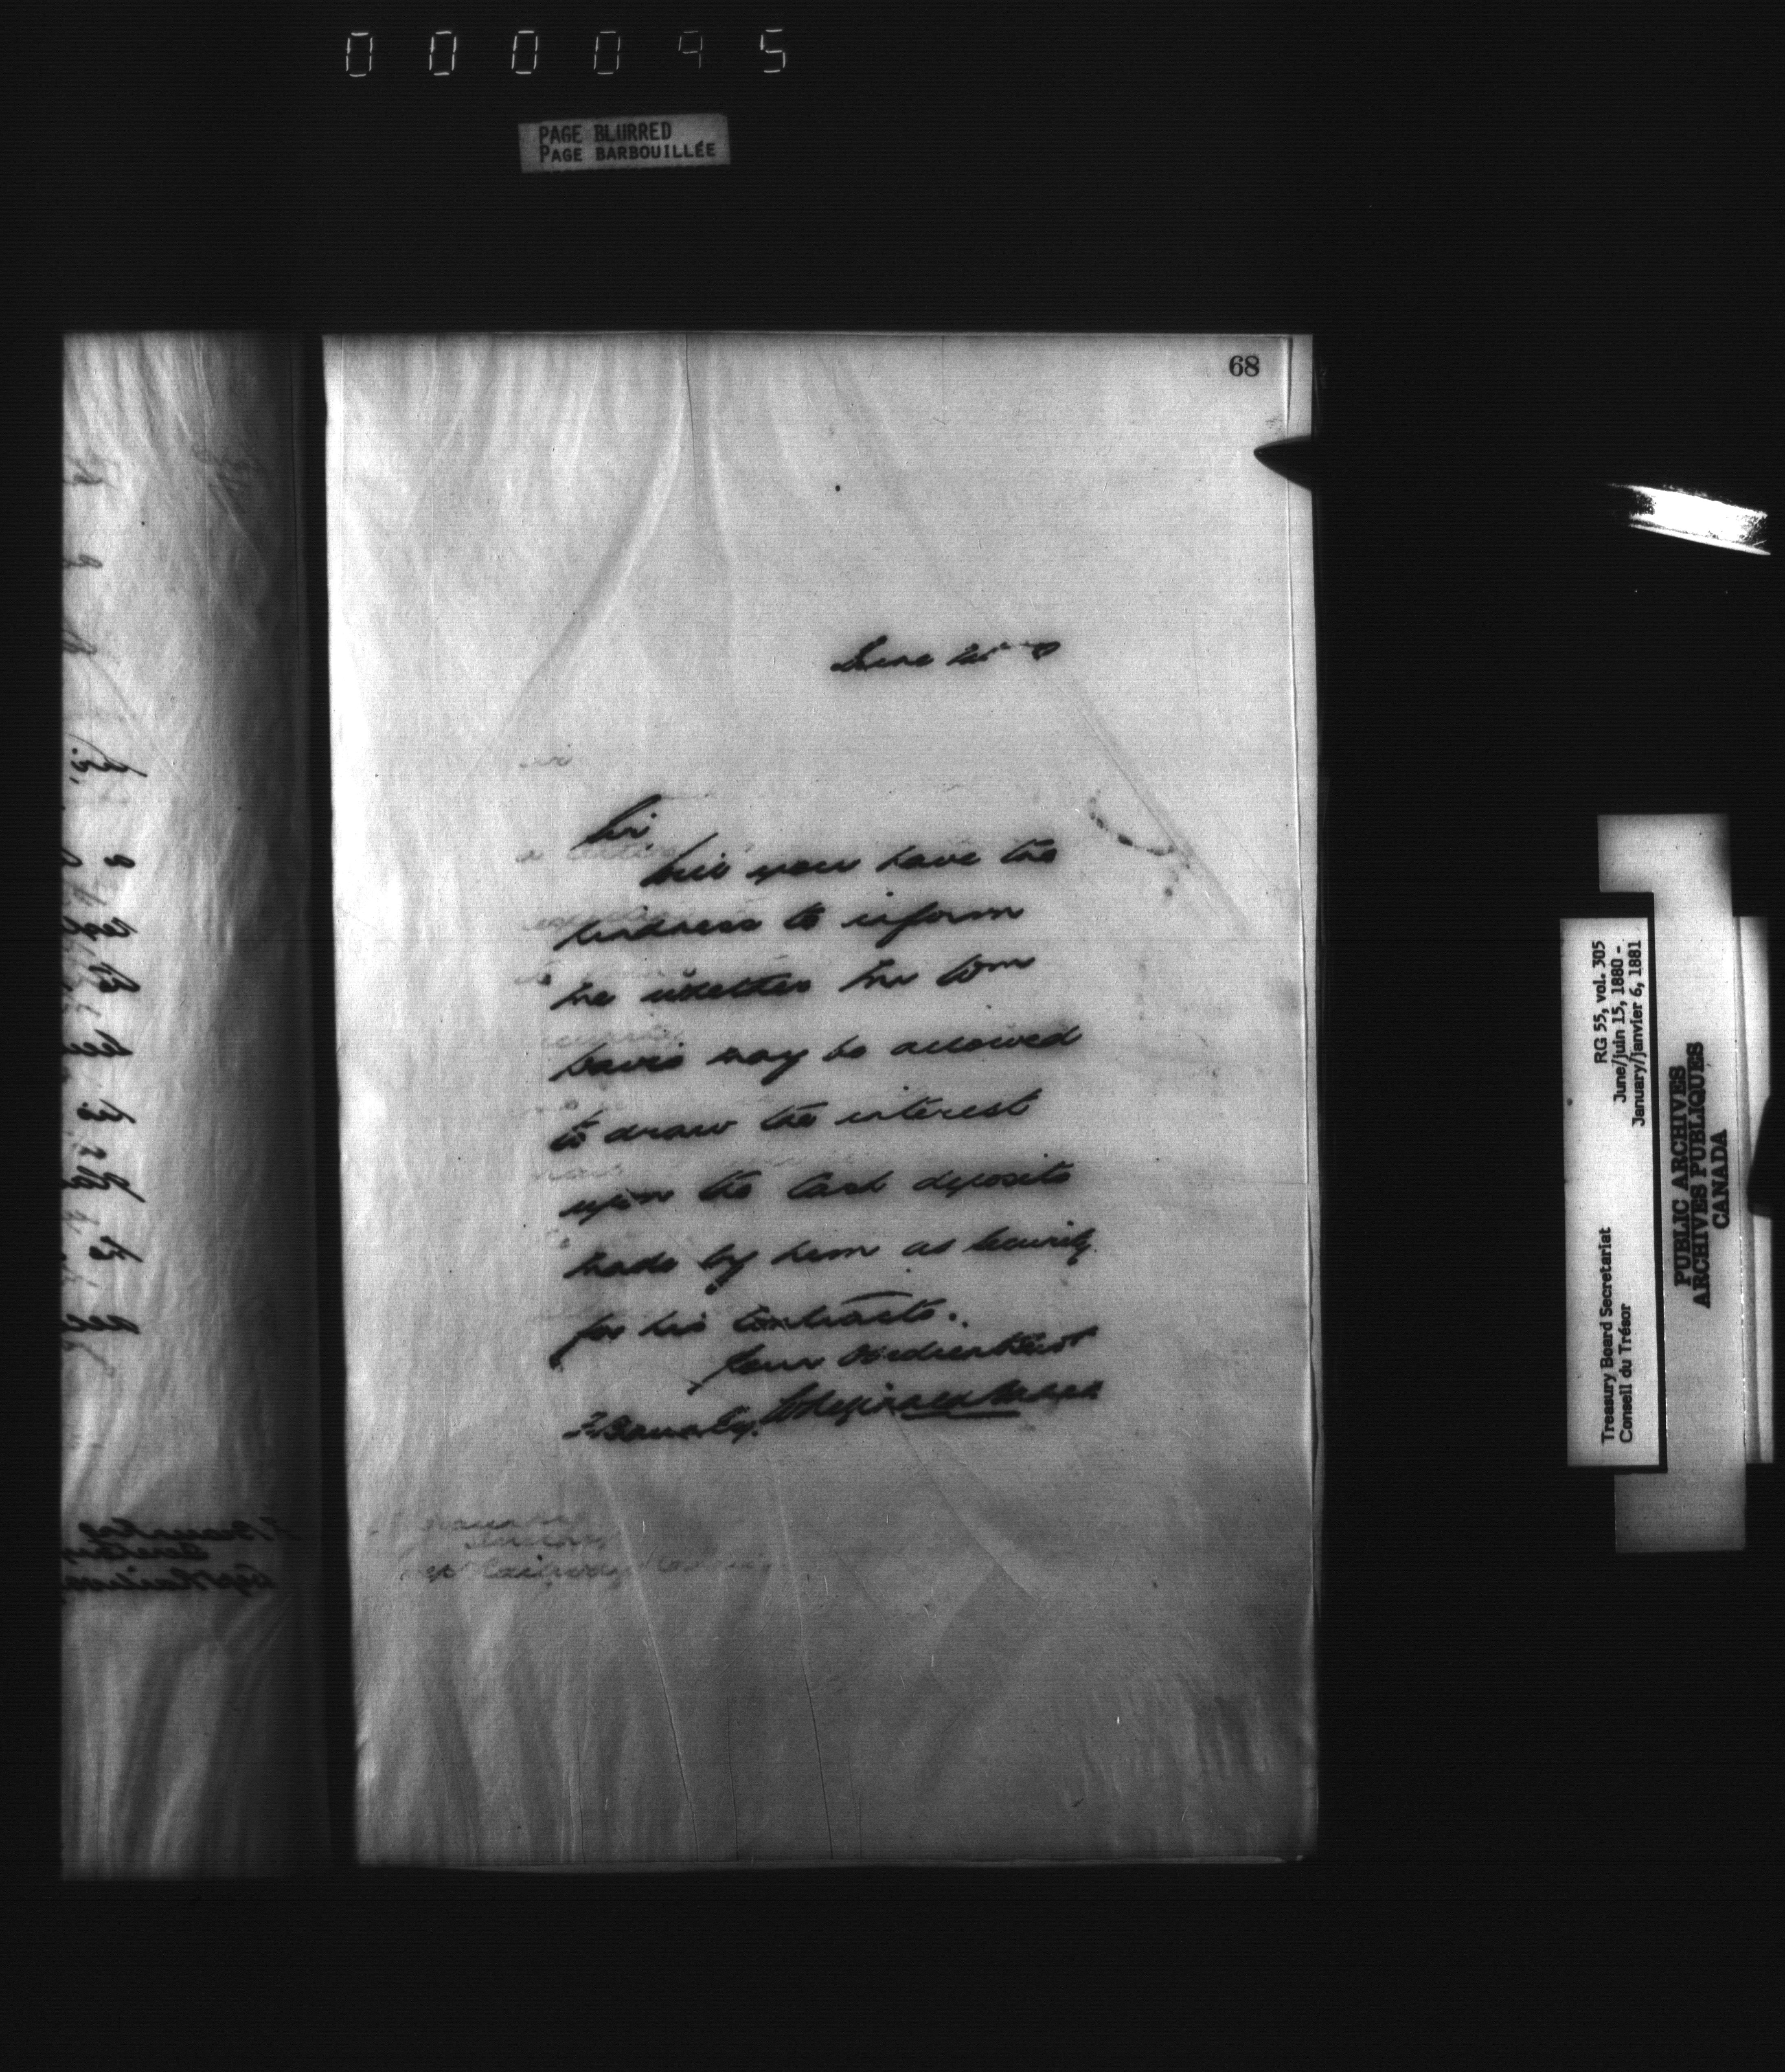 000095
PAGE BLURRED
PAGE BARBOUILLÉE
68
June
Sir
Will you have the
kindness to inform
me whether Mr Wm
Davis may be allowed
to draw the interest
upon the cash deposits
made by him as security
for his contracts.
Your Obedient Servt
F Braun Esq.
RG 55, vol. 305
June/juin 15, 1880 -
January/janvier 6, 1881
Treasury Board Secretariat
Conseil du Trésor
PUBLIC ARCHIVES
ARCHIVES PUBLIQUES
CANADA